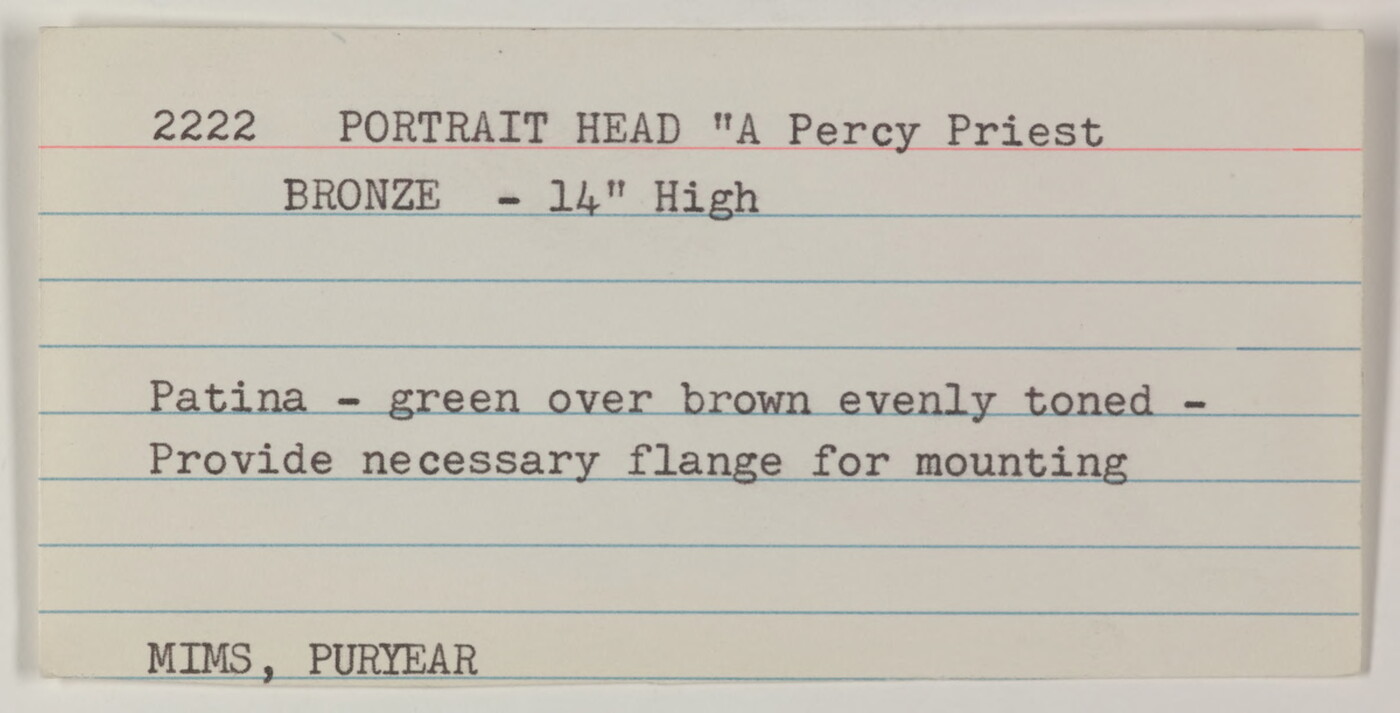 2222 PORTRAIT HEAD "A Percy Priest
BRONZE - 14" High
Patina - green over brown evenly toned -
Provide necessary flange for mounting
MIMS, PURYEAR